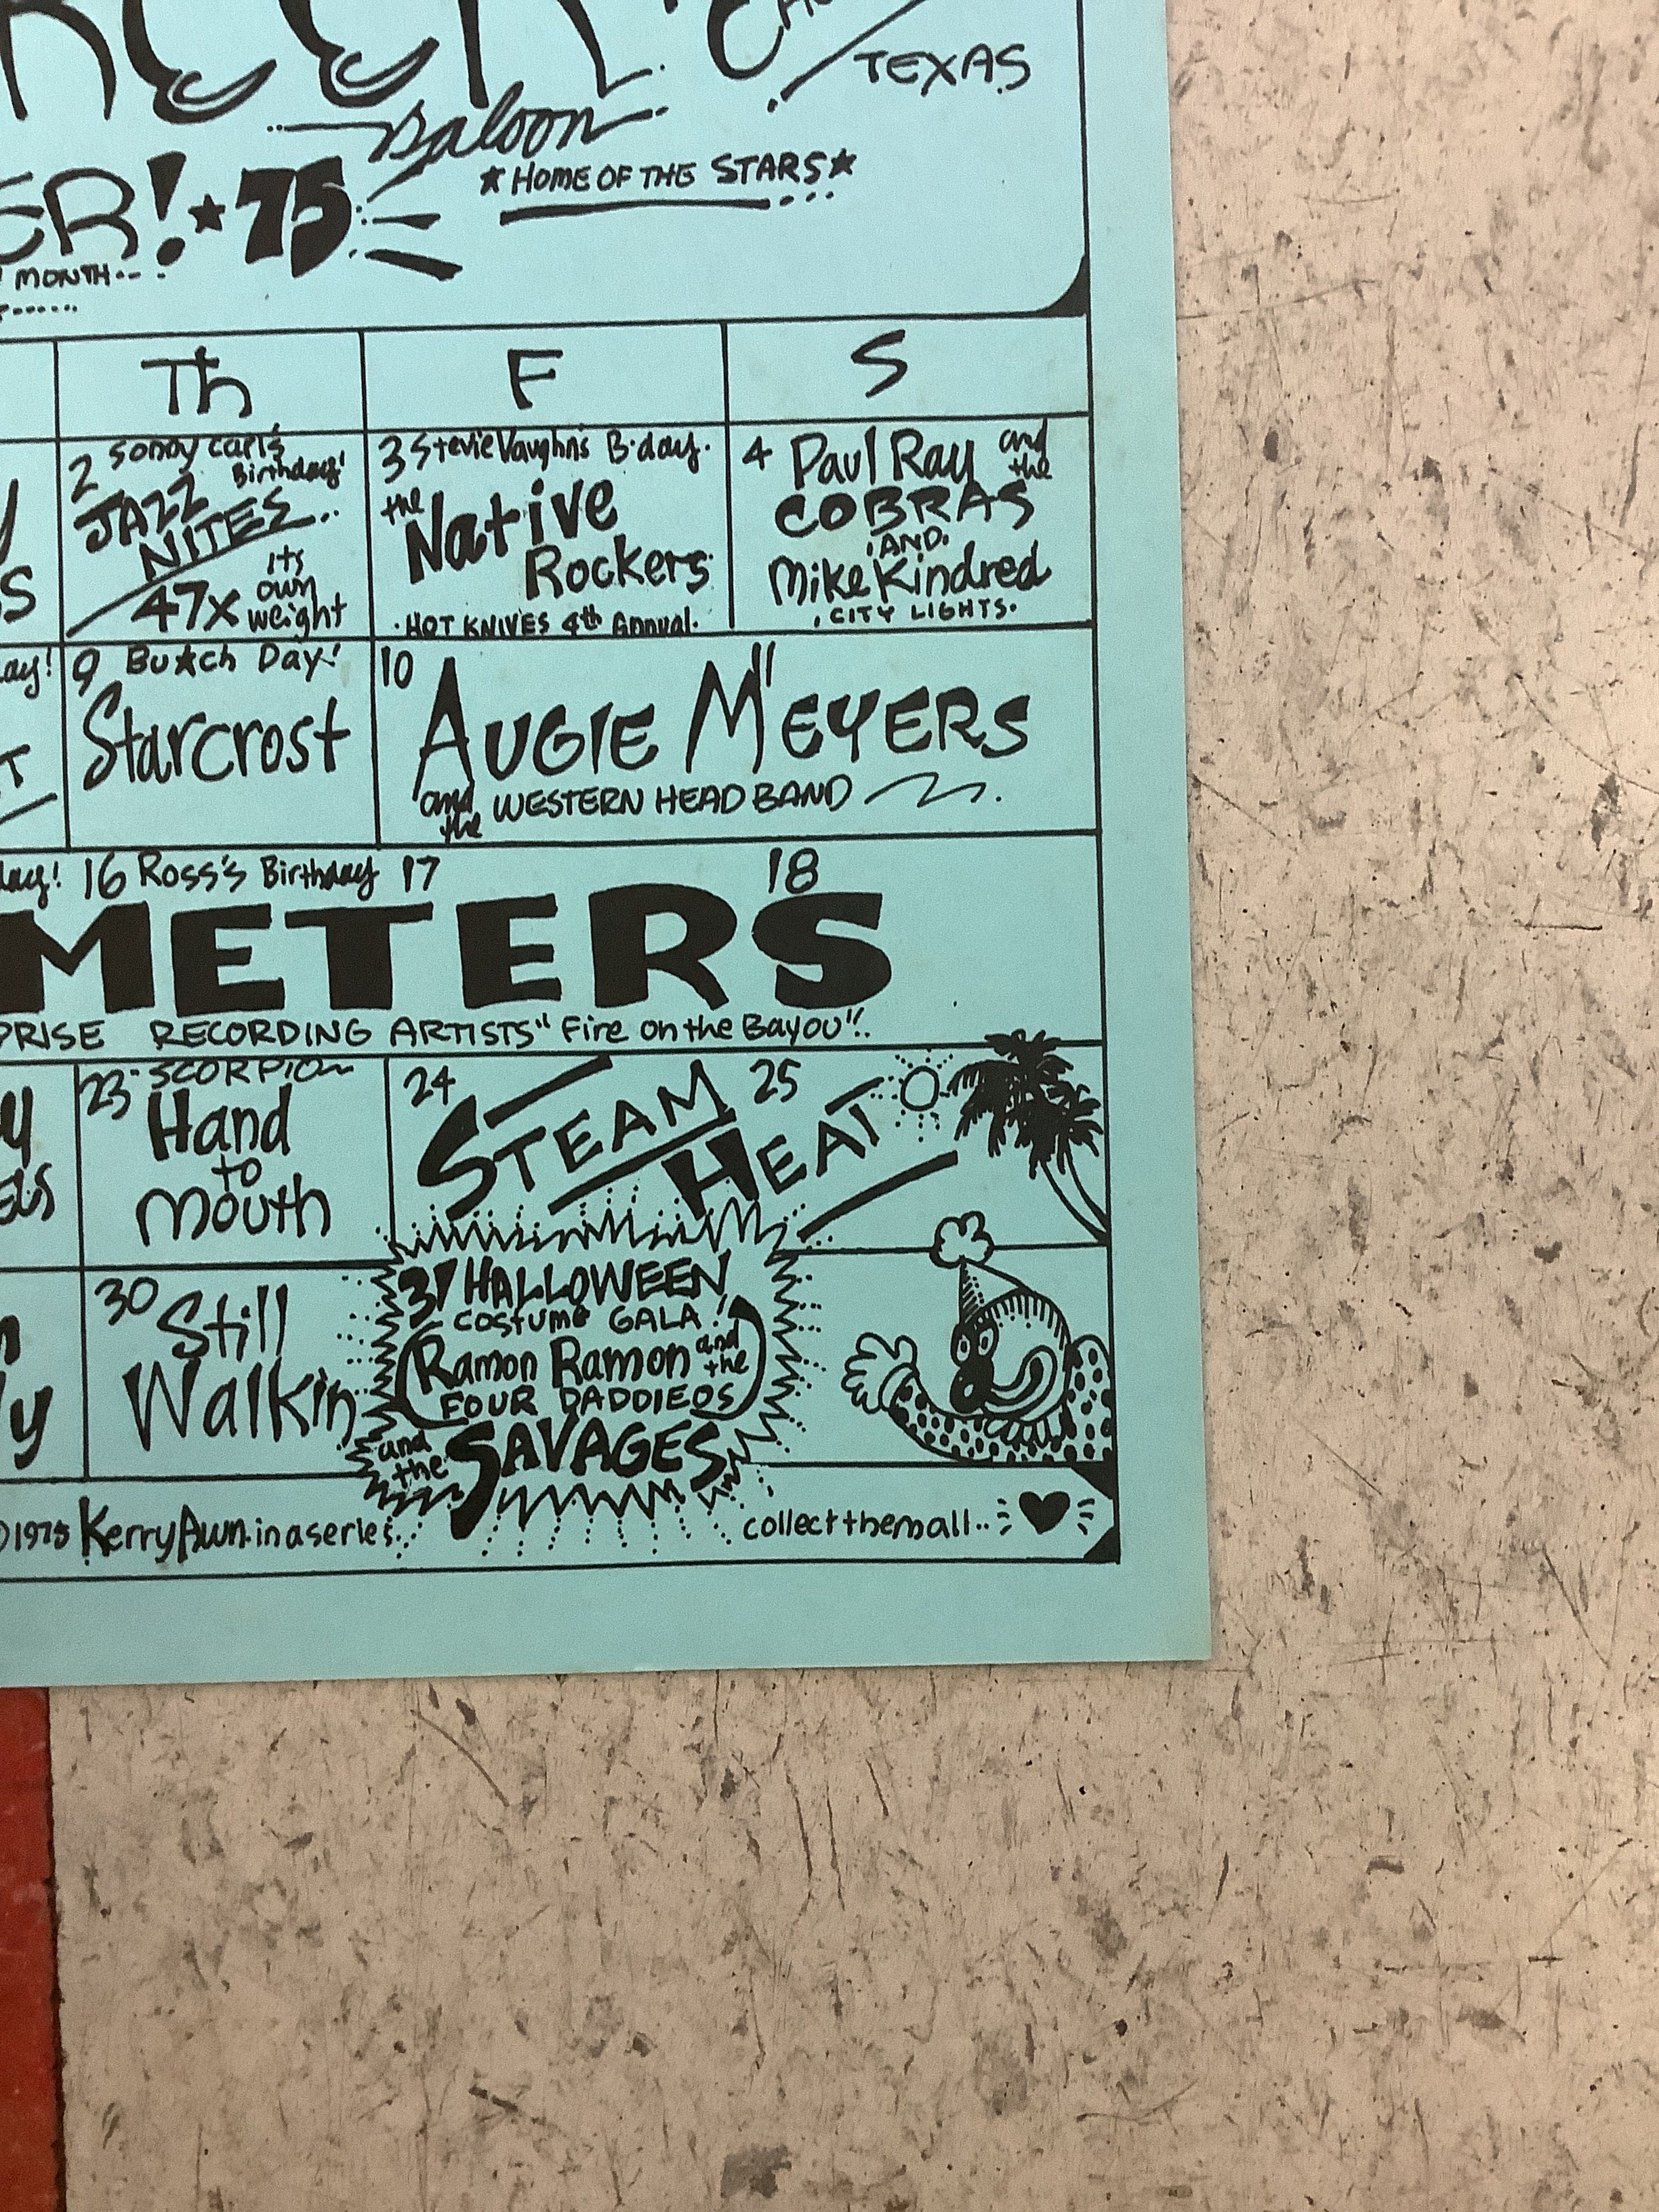 TEXAS
Saloon
★HOME OF THE STARS★
ER!★75
MONTH...
Th F S
2 Sonny Carl's
Birthday!
JAZZ
NITES...
47x its
own
weight
3 Stevie Vaughn's B·day.
the Native
Rockers
·HOT KNIVES 4th Annual·
4 Paul Ray and
the
COBRAS
·AND·
Mike Kindred
·CITY LIGHTS·
ay!
9 Bu★ch Day!
Starcrost
10
AUGIE MEYERS
and
the WESTERN HEAD BAND
day! 16 Ross's Birthday 17 18
METERS
PRISE RECORDING ARTISTS "Fire on the Bayou"..
23 ·SCORPIO
Hand
to
Mouth
24 25
STEAM
HEAT
30
Still
Walkin
31 HALLOWEEN
COSTUME GALA!
Ramon Ramon and
the
FOUR DADDIEOS
and
the SAVAGES
©1975 Kerry Awn·in a series..
collect them all..